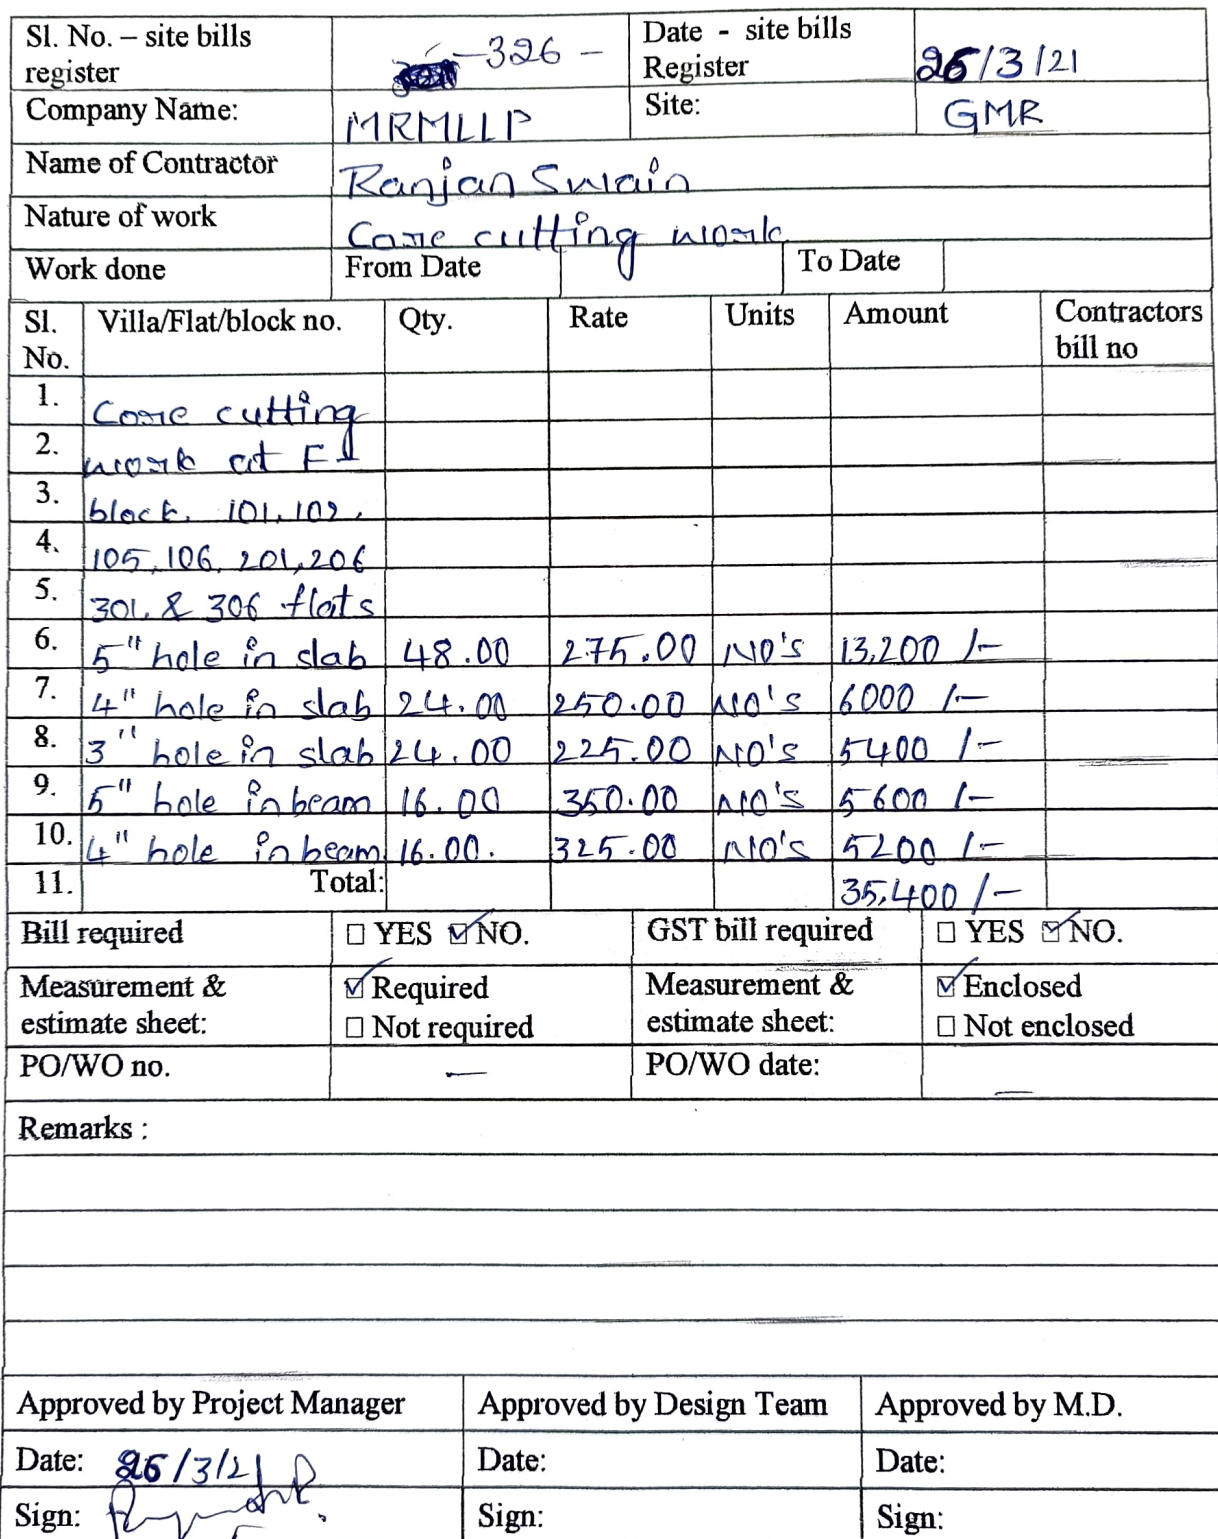 Sl. No. – site bills register -326- Date - site bills Register 25/3/21
Company Name: MRMLLP Site: GMR
Name of Contractor Ranjan Swain
Nature of work Core cutting work
Work done From Date To Date
Sl. No. Villa/Flat/block no. Qty. Rate Units Amount Contractors bill no
1. Core cutting
2. work at F1
3. block. 101, 102,
4. 105, 106, 201, 206
5. 301, & 306 flats
6. 5" hole in slab 48.00 275.00 NO's 13,200 /-
7. 4" hole in slab 24.00 250.00 NO's 6000 /-
8. 3" hole in slab 24.00 225.00 NO's 5400 /-
9. 5" hole in beam 16.00 350.00 NO's 5600 /-
10. 4" hole in beam 16.00. 325.00 NO's 5200 /-
11. Total: 35,400 /-
Bill required ☐ YES ☑ NO. GST bill required ☐ YES ☑ NO.
Measurement & estimate sheet: ☑ Required ☐ Not required Measurement & estimate sheet: ☑ Enclosed ☐ Not enclosed
PO/WO no. — PO/WO date: —
Remarks :
Approved by Project Manager Approved by Design Team Approved by M.D.
Date: 25/3/21 Date: Date:
Sign: Sign: Sign: